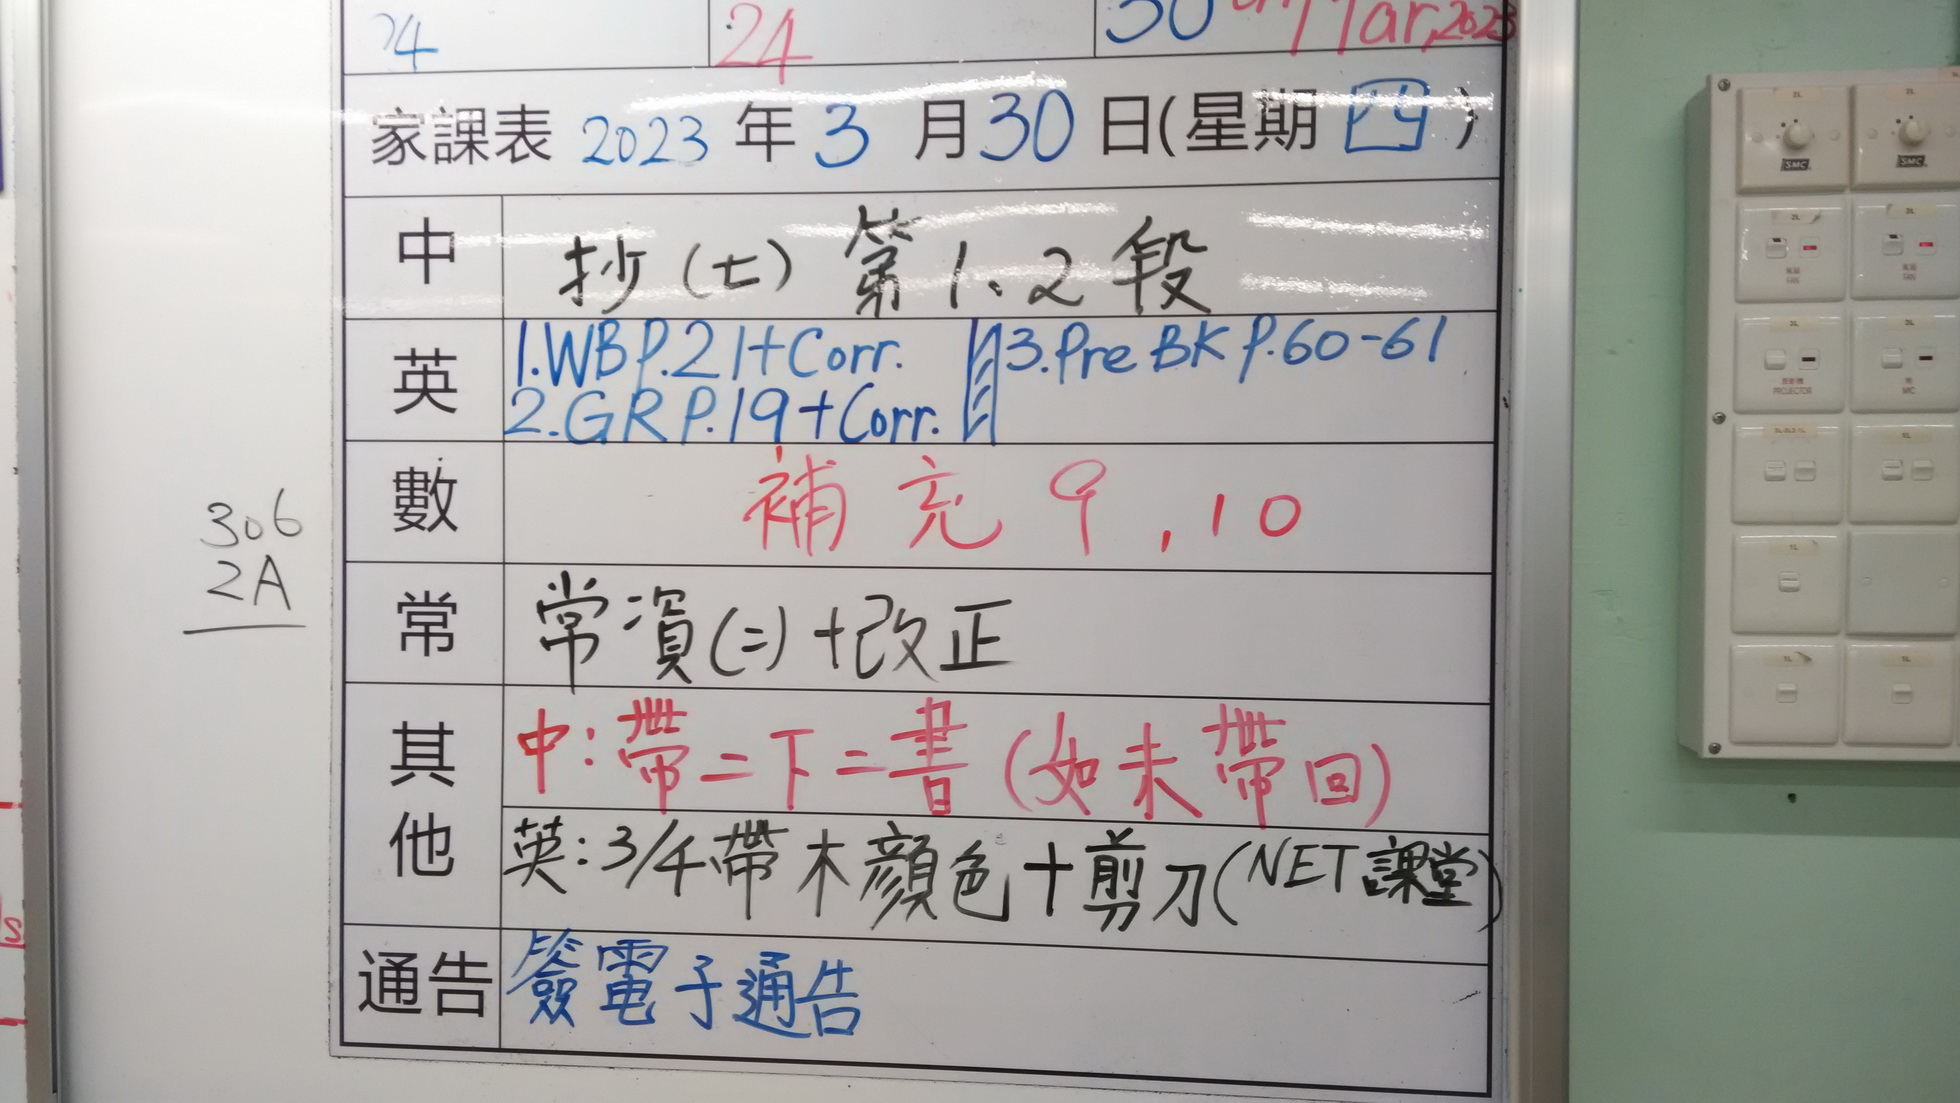 24
24
30th Mar, 2023
家課表 2023 年 3 月 30 日(星期 四 )
中
抄(七)第1、2段
英
1.WB P.21+Corr.
2.GR P.19+Corr.
3.Pre BK P.60-61
數
補充 9,10
306
2A
常
常資(二)+改正
其他
中:帶二下二書(如未帶回)
英:3/4帶木顏色+剪刀(NET課堂)
通告
簽電子通告
SMC
SMC
FAN
FAN
PROJECTOR
MIC